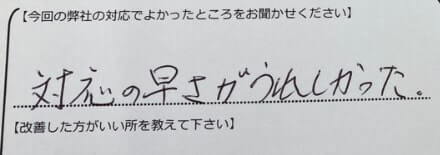 【今回の弊社の対応でよかったところをお聞かせください】
対応の早さがうれしかった。
【改善した方がいい所を教えて下さい】